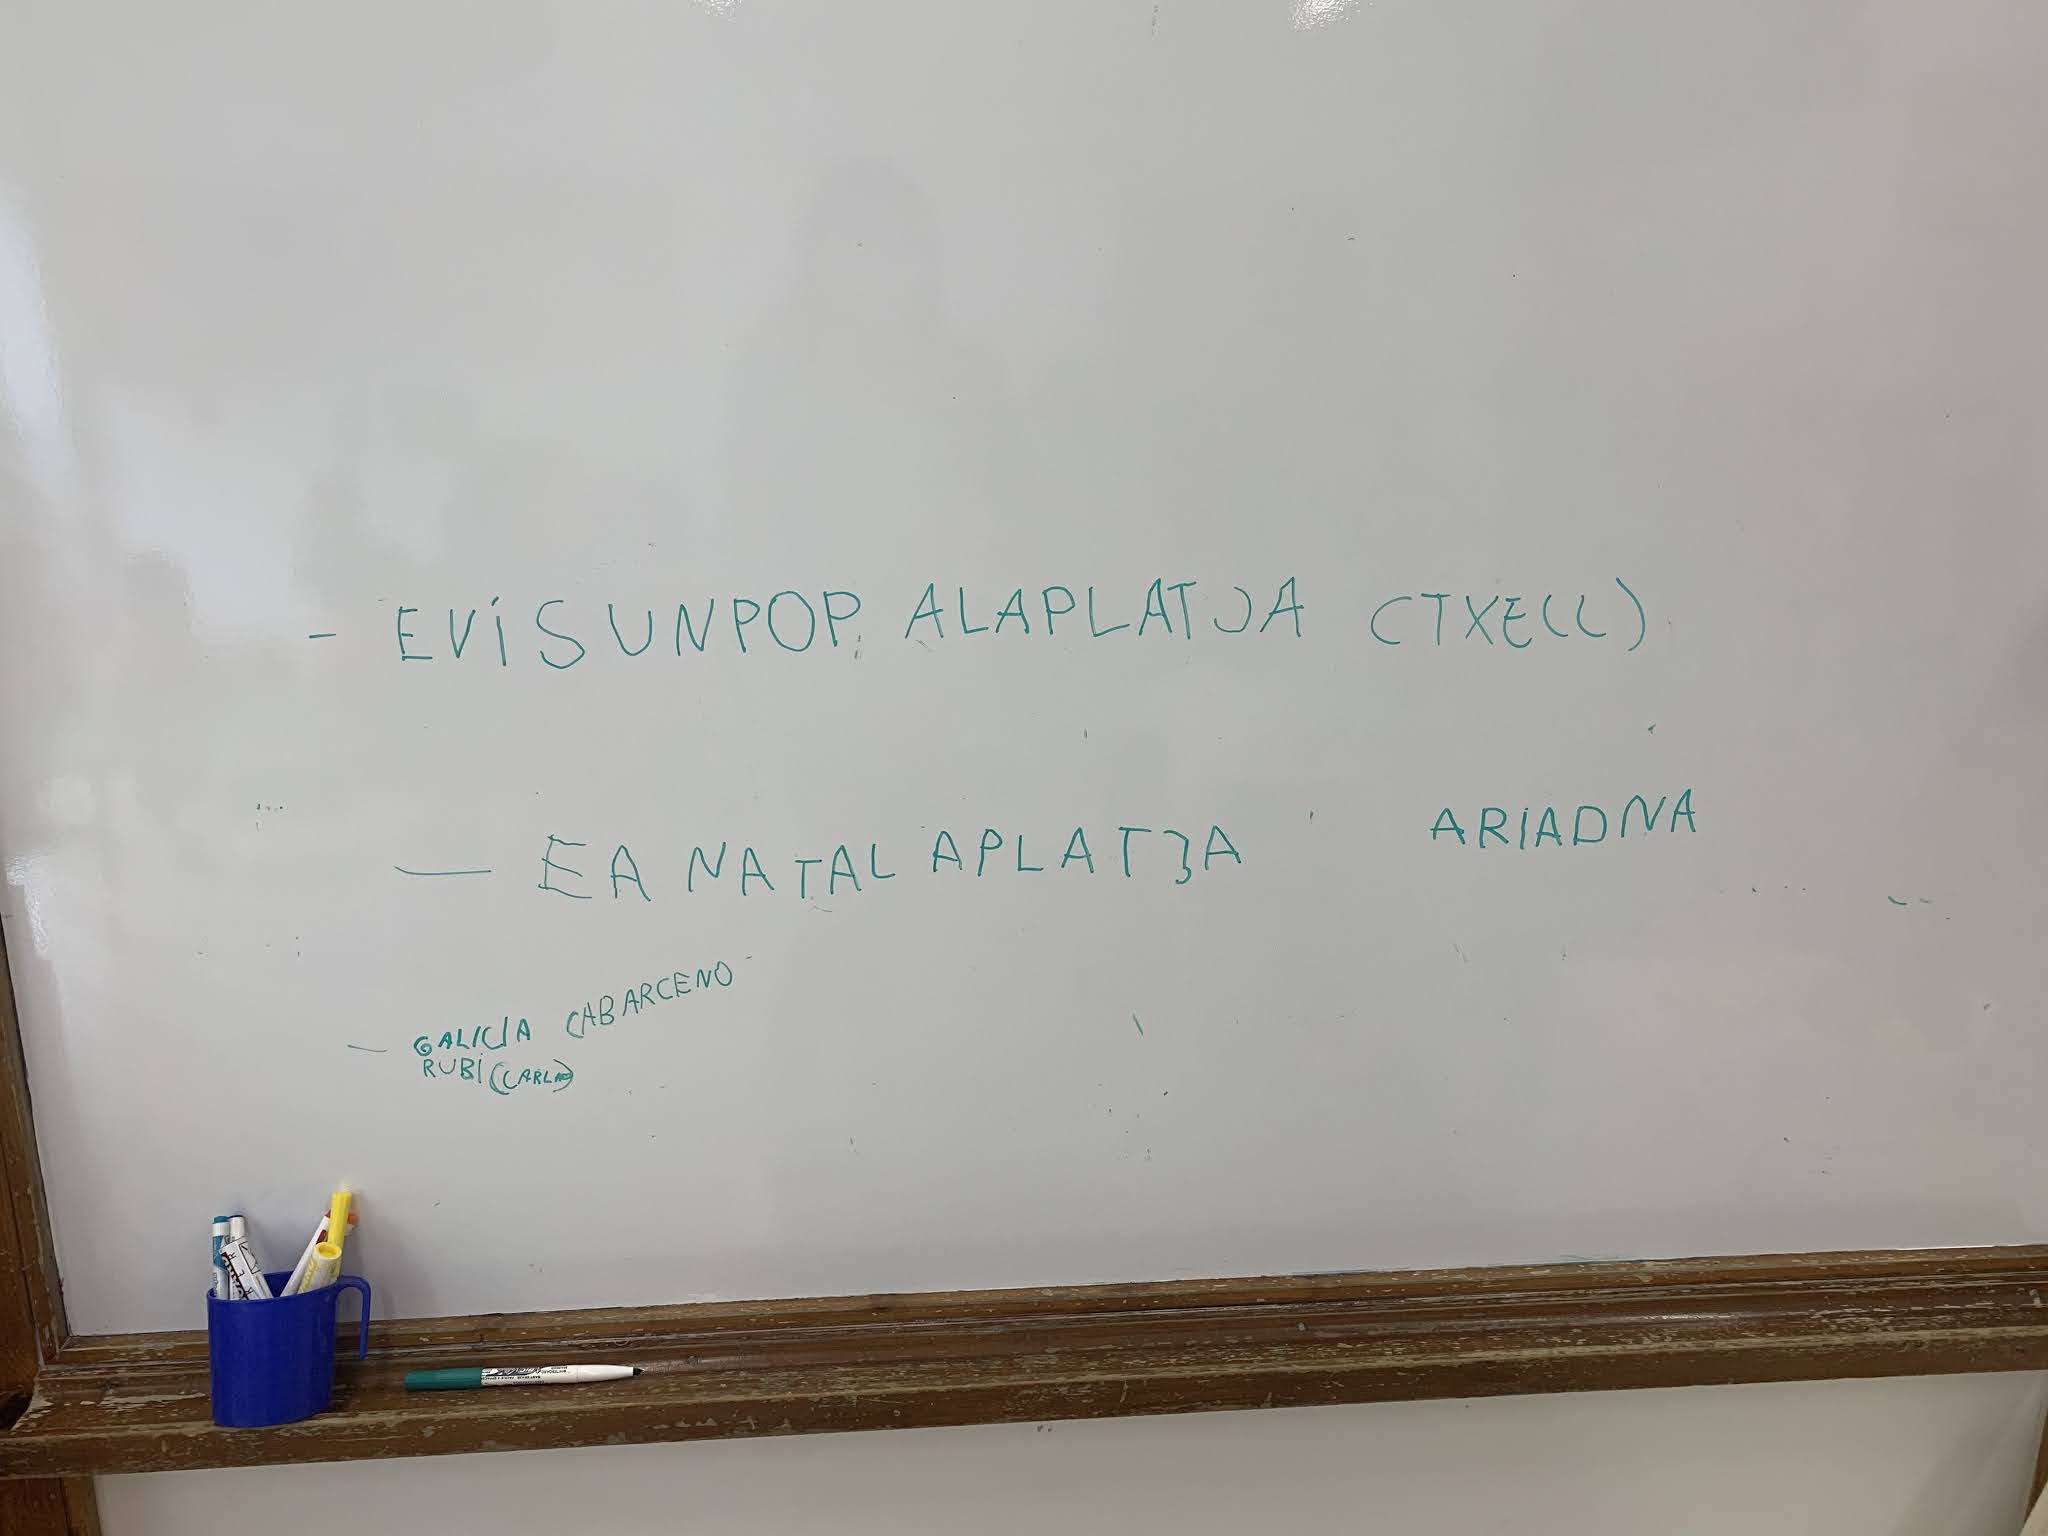 - EViSUNPOP ALAPLATJA (TXELL)
- EA NATAL APLATJA ARIADNA
- GALICIA CABARCENO
RUBÍ (CARLA)